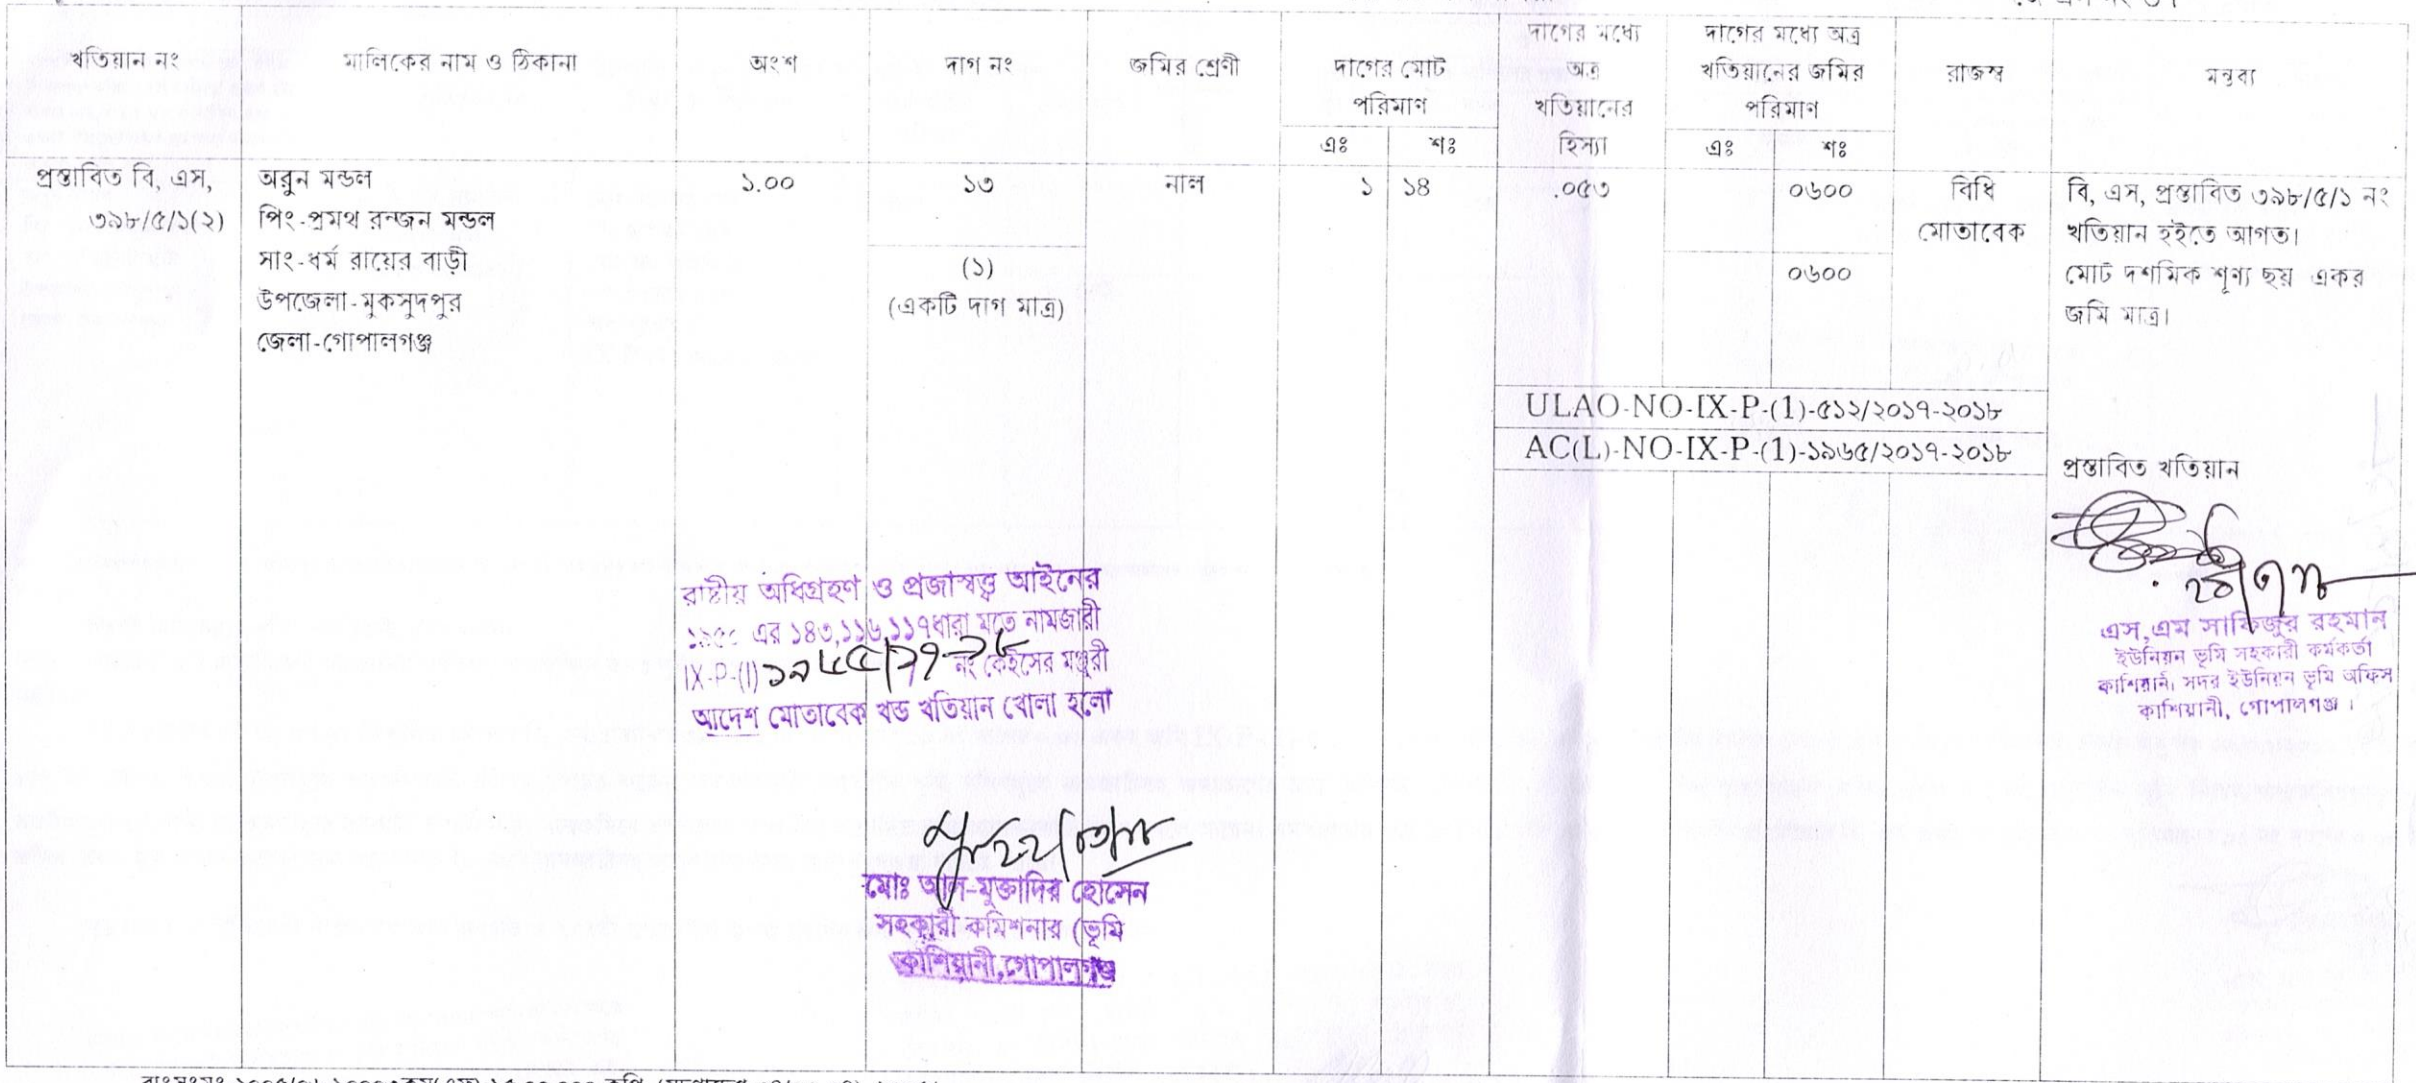 খতিয়ান নং
মালিকের নাম ও ঠিকানা
অংশ
দাগ নং
জমির শ্রেণী
দাগের মোট
পরিমাণ
এঃ
শঃ
দাগের মধ্যে
অত্র
খতিয়ানের
হিস্যা
দাগের মধ্যে অত্র
খতিয়ানের জমির
পরিমাণ
এঃ
শঃ
রাজস্ব
মন্তব্য
প্রস্তাবিত বি, এস,
৩৯৮/৫/১(২)
অরুন মন্ডল
পিং-প্রমথ রন্জন মন্ডল
সাং-ধর্ম রায়ের বাড়ী
উপজেলা-মুকসুদপুর
জেলা-গোপালগঞ্জ
১.০০
১৩
(১)
(একটি দাগ মাত্র)
নাল
১
১৪
.০৫৩
০৬০০
০৬০০
বিধি
মোতাবেক
বি, এস, প্রস্তাবিত ৩৯৮/৫/১ নং
খতিয়ান হইতে আগত।
মোট দশমিক শূণ্য ছয় একর
জমি মাত্র।
ULAO-NO-IX-P-(1)-৫১২/২০১৭-২০১৮
AC(L)-NO-IX-P-(1)-১৯৬৫/২০১৭-২০১৮
প্রস্তাবিত খতিয়ান
এস,এম সাফিজুর রহমান
ইউনিয়ন ভূমি সহকারী কর্মকর্তা
কাশিয়ানী সদর ইউনিয়ন ভূমি অফিস
কাশিয়ানী, গোপালগঞ্জ।
রাষ্টীয় অধিগ্রহণ ও প্রজাস্বত্ত্ব আইনের
১৯৫০ এর ১৪৩,১১৬,১১৭ধারা মতে নামজারী
IX-P-(I) নং কেইসের মঞ্জুরী
আদেশ মোতাবেক খন্ড খতিয়ান খোলা হলো
মোঃ আল-মুক্তাদির হোসেন
সহকারী কমিশনার (ভূমি
কাশিয়ানী,গোপালগঞ্জ